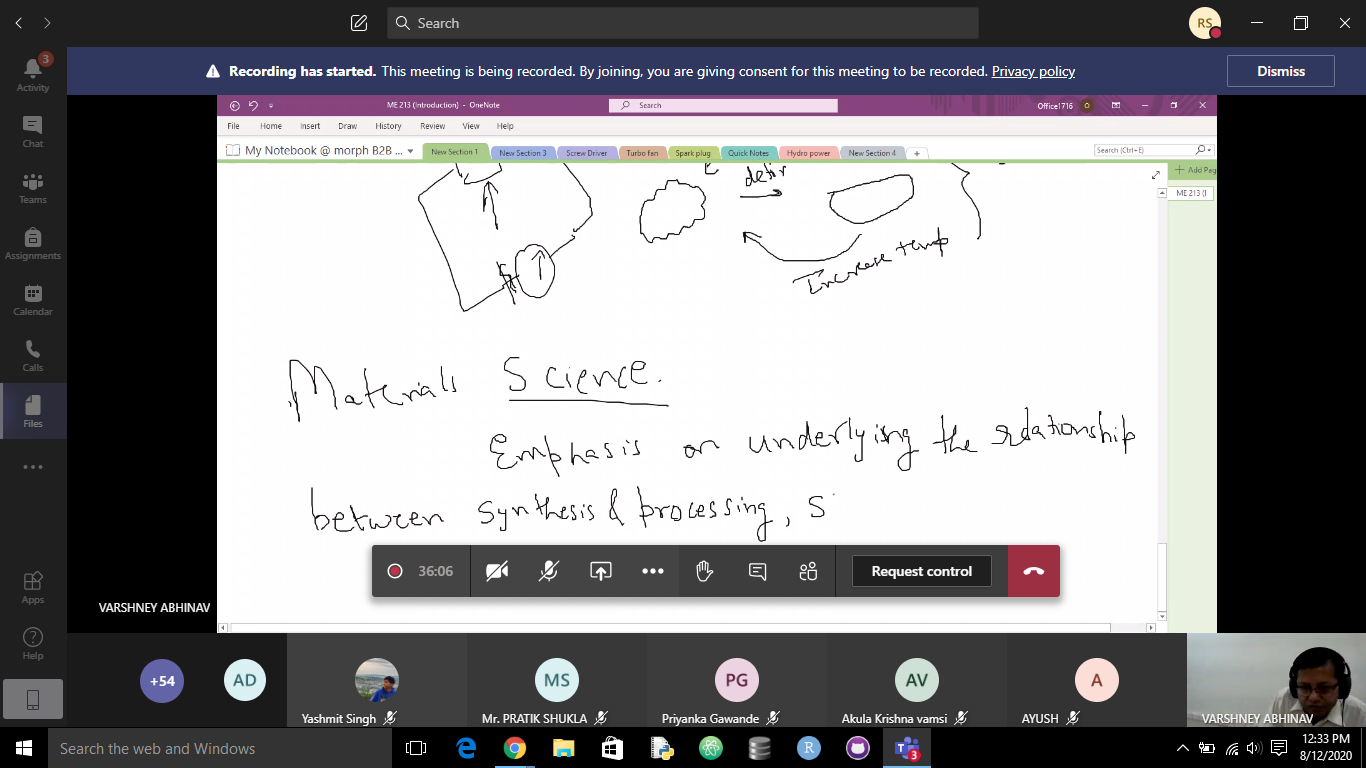 Search
RS
Recording has started. This meeting is being recorded. By joining, you are giving consent for this meeting to be recorded. Privacy policy
Dismiss
3
Activity
Chat
Teams
Assignments
Calendar
Calls
Files
Apps
Help
ME 213 (Introduction) - OneNote
Search
Office1716
O
File Home Insert Draw History Review View Help
My Notebook @ morph B2B ...
New Section 1 New Section 3 Screw Driver Turbo fan Spark plug Quick Notes Hydro power New Section 4 +
Search (Ctrl+E)
+ Add Pag
ME 213 (I
Increase temp
Materials Science.
Emphasis on underlying the relationship
between synthesis & processing, S
36:06
Request control
VARSHNEY ABHINAV
+54
AD
Yashmit Singh
MS
Mr. PRATIK SHUKLA
PG
Priyanka Gawande
AV
Akula Krishna vamsi
A
AYUSH
VARSHNEY ABHINAV
Search the web and Windows
R
3
12:33 PM
8/12/2020